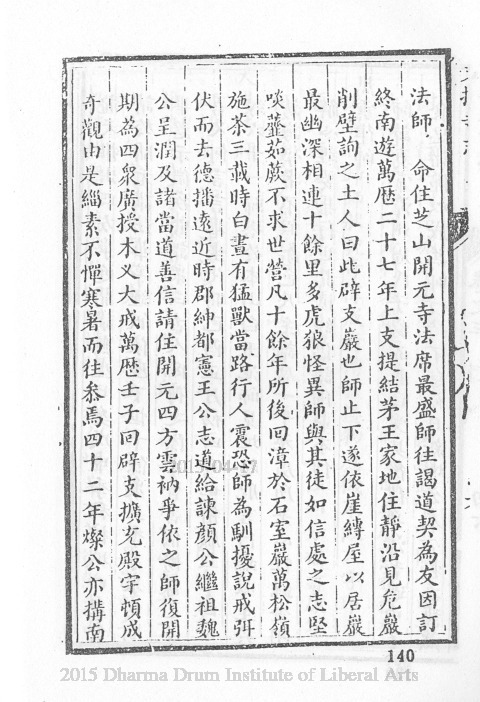 法師命住芝山開元寺法席最盛師往謁道契為友因訂
終南遊萬歷二十七年上支提結茅王家地住靜沿見危巖
削壁詢之土人曰此辟支巖也師止下遂依崖縛屋以居巖
最幽深相連十餘里多虎狼怪異師與其徒如信處之志堅
啖虀茹蕨不求世營凡十餘年所後回漳於石室巖萬松嶺
施茶三載時白晝有猛獸當路行人震恐師為馴擾說戒弭
伏而去德播遠近時郡紳都憲王公志道給諫顏公繼祖魏
公呈潤及諸當道善信請住開元四方雲衲爭依之師復開
期為四眾廣授木叉大戒萬歷壬子回辟支擴充殿宇頓成
奇觀由是緇素不憚寒暑而往叅焉四十二年燦公亦搆南
140
2015 Dharma Drum Institute of Liberal Arts